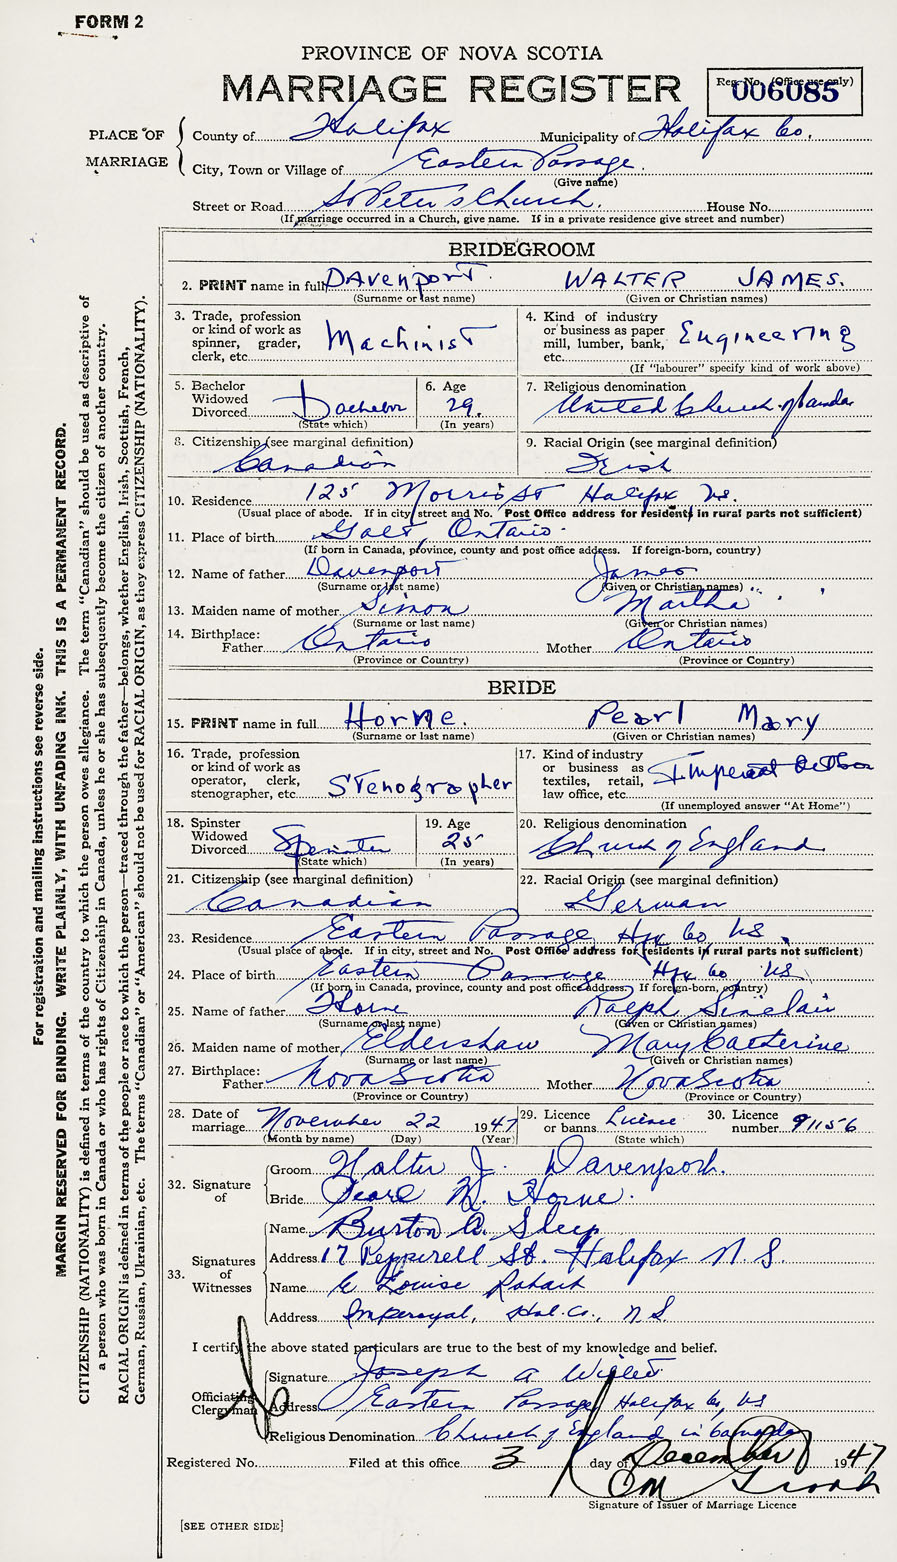 FORM 2
PROVINCE OF NOVA SCOTIA
MARRIAGE REGISTER
Reg. No. (Office use only)
006085
PLACE OF MARRIAGE
County of Halifax Municipality of Halifax Co.
City, Town or Village of Eastern Passage.
(Give name)
Street or Road St Peter's Church. House No.
(If marriage occurred in a Church, give name. If in a private residence give street and number)
BRIDEGROOM
2. PRINT name in full Davenport. WALTER JAMES.
(Surname or last name) (Given or Christian names)
3. Trade, profession or kind of work as spinner, grader, clerk, etc. Machinist
4. Kind of industry or business as paper mill, lumber, bank, etc. Engineering
(If "labourer" specify kind of work above)
5. Bachelor Widowed Divorced Bachelor
(State which)
6. Age 29.
(In years)
7. Religious denomination United Church of Canada
8. Citizenship (see marginal definition) Canadian
9. Racial Origin (see marginal definition) Irish
10. Residence 125 Morris St Halifax NS.
(Usual place of abode. If in city street and No. Post Office address for residents in rural parts not sufficient)
11. Place of birth Galt, Ontario.
(If born in Canada, province, county and post office address. If foreign-born, country)
12. Name of father Davenport James
(Surname or last name) (Given or Christian names)
13. Maiden name of mother Simon Martha
(Surname or last name) (Given or Christian names)
14. Birthplace:
Father Ontario Mother Ontario
(Province or Country) (Province or Country)
BRIDE
15. PRINT name in full Horne. Pearl Mary
(Surname or last name) (Given or Christian names)
16. Trade, profession or kind of work as operator, clerk, stenographer, etc. Stenographer
17. Kind of industry or business as textiles, retail, law office, etc. Imperial
(If unemployed answer "At Home")
18. Spinster Widowed Divorced Spinster
(State which)
19. Age 25
(In years)
20. Religious denomination Church of England
21. Citizenship (see marginal definition) Canadian
22. Racial Origin (see marginal definition) German
23. Residence Eastern Passage Hfx Co, NS
(Usual place of abode. If in city, street and No. Post Office address for residents in rural parts not sufficient)
24. Place of birth Eastern Passage Hfx Co NS
(If born in Canada, province, county and post office address. If foreign-born, country)
25. Name of father Horne Ralph Sinclair
(Surname or last name) (Given or Christian names)
26. Maiden name of mother Eldershaw Mary Catherine
(Surname or last name) (Given or Christian names)
27. Birthplace:
Father Nova Scotia Mother Nova Scotia
(Province or Country) (Province or Country)
28. Date of marriage November 22 1947
(Month by name) (Day) (Year)
29. Licence or banns Licence
(State which)
30. Licence number 91156
32. Signature of
Groom Walter J. Davenport.
Bride Pearl M. Horne.
33. Signatures of Witnesses
Name Burton A. Sleep
Address 17 Pepperell St. Halifax N.S.
Name Louise
Address Imperoyal, Hal. Co., N.S.
I certify the above stated particulars are true to the best of my knowledge and belief.
Officiating Clergyman
Signature Joseph A
Address Eastern Passage Halifax Co, NS
Religious Denomination Church of England in Canada
Registered No. Filed at this office 3 day of December 1947
Signature of Issuer of Marriage Licence
[SEE OTHER SIDE]
For registration and mailing instructions see reverse side.
MARGIN RESERVED FOR BINDING. WRITE PLAINLY, WITH UNFADING INK. THIS IS A PERMANENT RECORD.
CITIZENSHIP (NATIONALITY) is defined in terms of the country to which the person owes allegiance. The term "Canadian" should be used as descriptive of
a person who was born in Canada or who has rights of Citizenship in Canada, unless he or she has subsequently become the citizen of another country.
RACIAL ORIGIN is defined in terms of the people or race to which the person—traced through the father—belongs, whether English, Irish, Scottish, French,
German, Russian, Ukrainian, etc. The terms "Canadian" or "American" should not be used for RACIAL ORIGIN, as they express CITIZENSHIP (NATIONALITY).